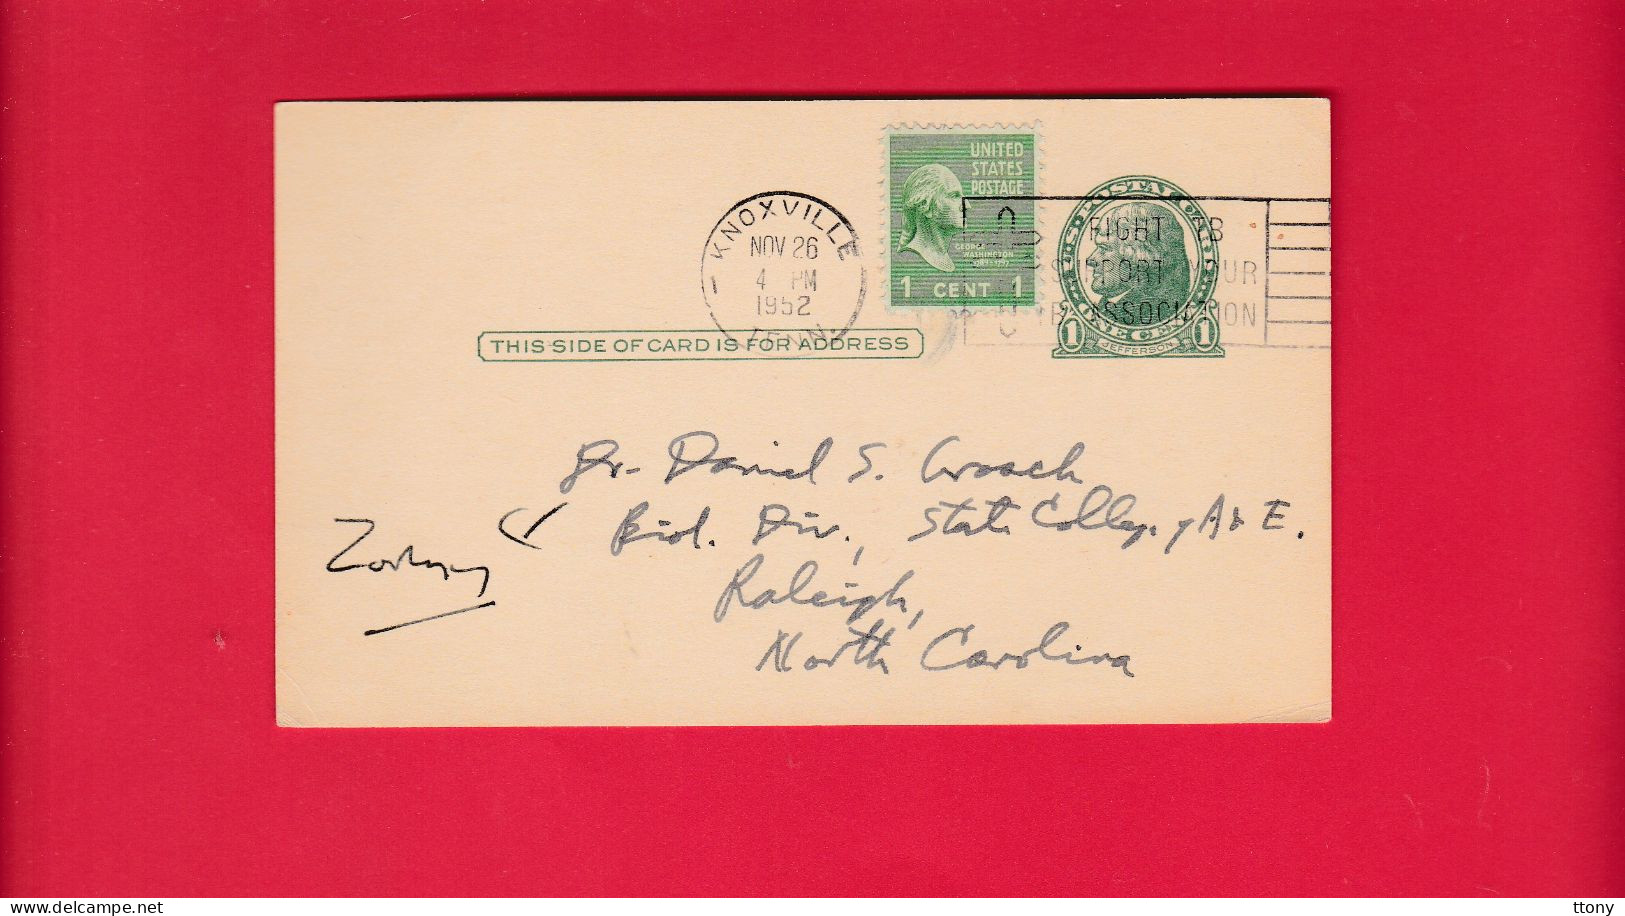 UNITED
STATES
POSTAGE
GEORGE
WASHINGTON
1789-1797
1 CENT 1
KNOXVILLE
NOV 26
4 PM
1952
TENN.
FIGHT TB
SUPPORT YOUR
TB ASSOCIATION
U.S. POSTAL CARD
1 ONE CENT 1
JEFFERSON
THIS SIDE OF CARD IS FOR ADDRESS
Dr. Daniel S. Grosch
Biol. Div., State College, of A & E.
Zoology
Raleigh,
North Carolina
ttony
delcampe.net